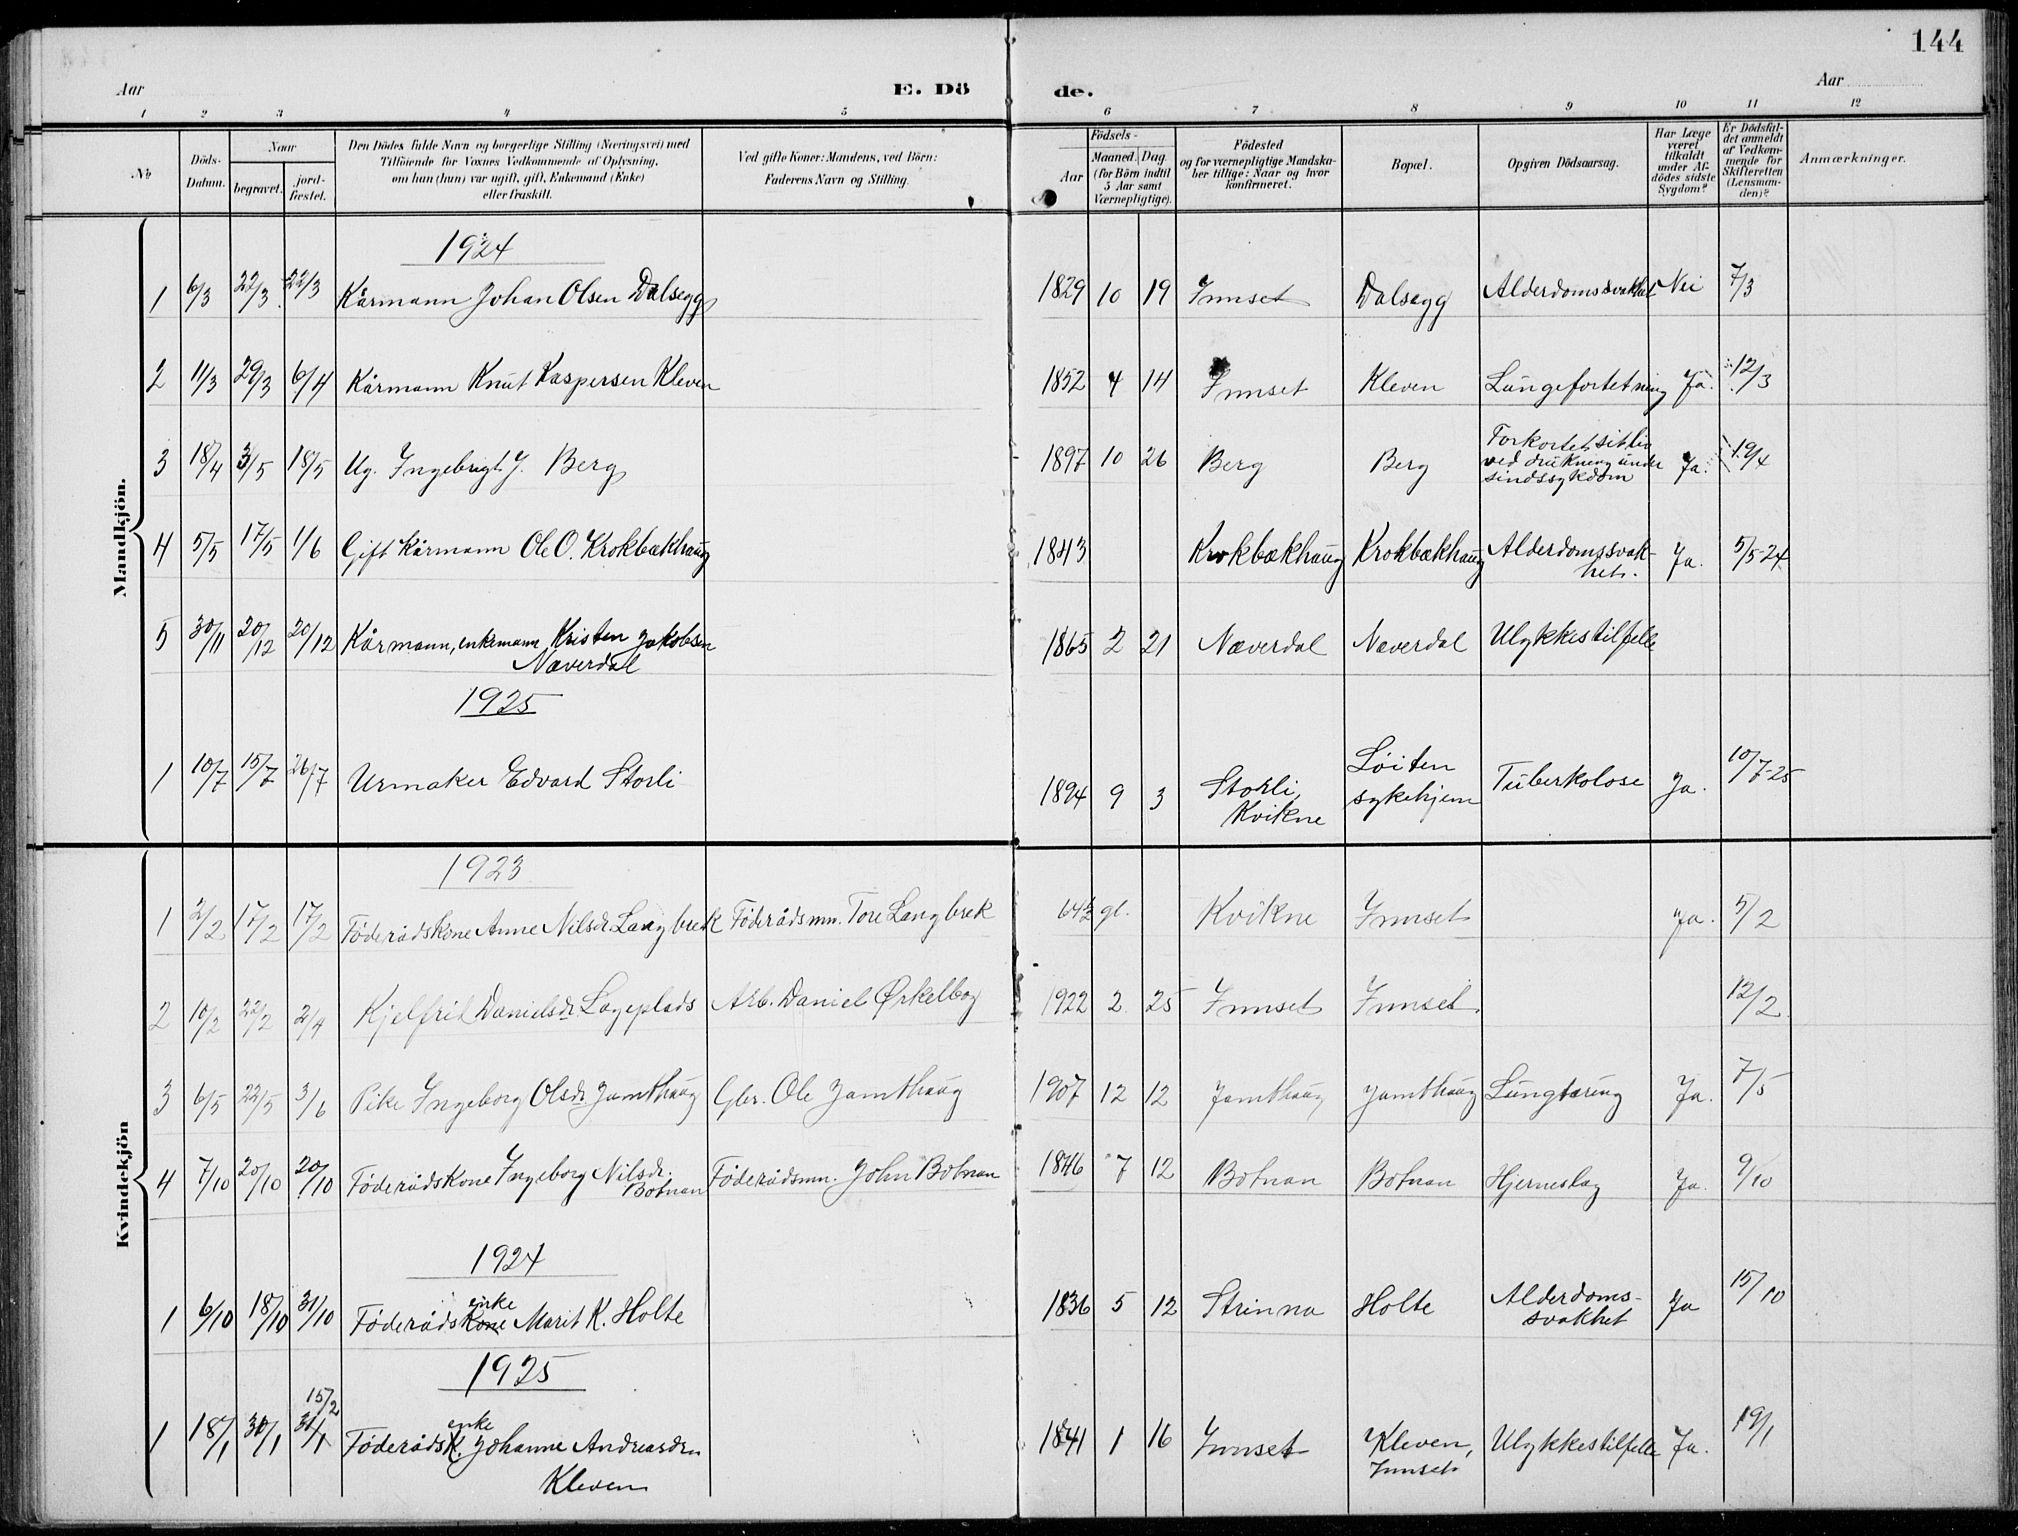 144
Aar E. Dö de. Aar
1 2 3 4 5 6 7 8 9 10 11 12
No
Döds-
Datum.
Naar
begravet. jord-
fæstet.
Den Dödes fulde Navn og borgerlige Stilling (Næringsvei) med
Tilföiende for Voxnes Vedkommende af Oplysning,
om han (hun) var ugift, gift, Enkemand (Enke)
eller fraskilt.
Ved gifte Koner: Mandens, ved Börn:
Faderens Navn og Stilling.
Födsels-
Aar Maaned. Dag
(for Börn indtil
5 Aar samt
Værnepligtige).
Födested
og for værnepligtige Mandska-
ber tillige: Naar og hvor
konfirmeret.
Bopæl.
Opgiven Dödsaarsag.
Har Læge
været
tilkaldt
under Af-
dödes sidste
Sygdom?
Er Dödsfal-
det anmeldt
af Vedkom-
mende for
Skifteretten
(Lensman-
den)?
Anmærkninger.
Mandkjön.
1924
1 6/3 22/3 22/3 Kårmann Johan Olsen Dalsegg 1829 10 19 Innset Dalsegg Alderdomssvakhet Nei 7/3
2 11/3 29/3 6/4 Kårmann Knut Kaspersen Kleven 1852 4 14 Innset Kleven Lungefortetning Ja. 12/3
3 18/4 3/5 18/5 Ug. Ingebrigt J. Berg 1897 10 26 Berg Berg Forkortet sit liv
ved drukning under
sindssykdom Ja. 19/4
4 5/5 17/5 1/6 Gift Kårmann Ole O. Krokbækhaug 1843 Krokbækhaug Krokbækhaug Alderdomssvak-
het. Ja. 5/5-24
5 30/11 20/12 20/12 Kårmann, enkemann, Kristen Jakobsen
Næverdal 1865 2 21 Næverdal Næverdal Ulykkestilfelle
1925
1 10/7 15/7 26/7 Urmaker Edvard Storli 1894 9 3 Storli,
Kvikne Löiten
sykehjem Tuberkolose Ja. 10/7-25
Kvindekjön
1923
1 2/2 17/2 17/2 Föderådskone Anne Nilsdr. Langbrek Föderådsmn. Tore Langbrek 64½ gl. Kvikne Innset Ja. 5/2
2 10/2 22/2 2/4 Kjelfrid Danielsdr. Lageplads Arb. Daniel Ørkelbog 1922 2 25 Innset Innset 12/2
3 6/5 22/5 3/6 Pike Ingeborg Olsdr. Jamthaug Gbr. Ole Jamthaug 1907 12 12 Jamthaug Jamthaug Lungtæring Ja. 7/5
4 7/10 20/10 20/10 Föderådskone Ingeborg Nilsdr.
Botnan Föderådsmn. John Botnan 1846 7 12 Botnan Botnan Hjerneslag Ja. 9/10
1924
1 6/10 18/10 31/10 Föderådskone enke Marit K. Holte 1836 5 12 Strinna Holte Alderdoms-
svakhet Ja 15/10
1925
15/2
1 18/1 30/1 31/1 Föderådsk. enke Johanne Andreasdr.
Kleven 1841 1 16 Innset Kleven,
Innset Ulykkestilfelle Ja. 19/1